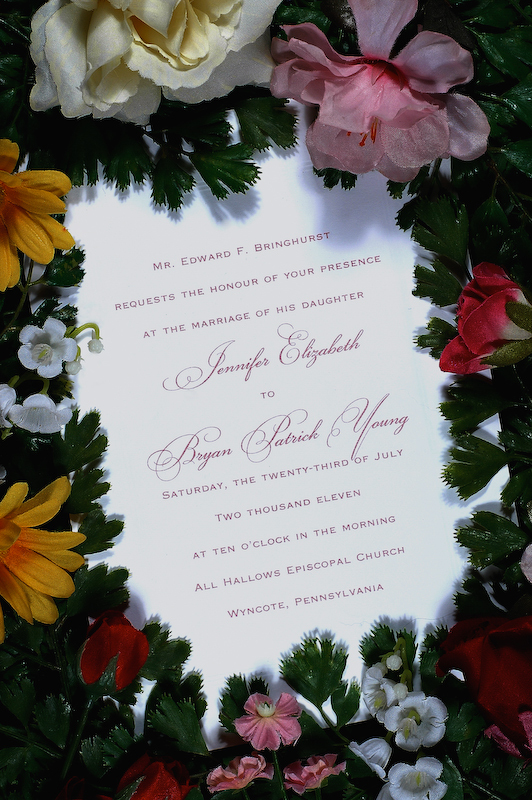 Mr. Edward F. Bringhurst
requests the honour of your presence
at the marriage of his daughter
Jennifer Elizabeth
to
Bryan Patrick Young
Saturday, the twenty-third of July
Two thousand eleven
at ten o'clock in the morning
All Hallows Episcopal Church
Wyncote, Pennsylvania